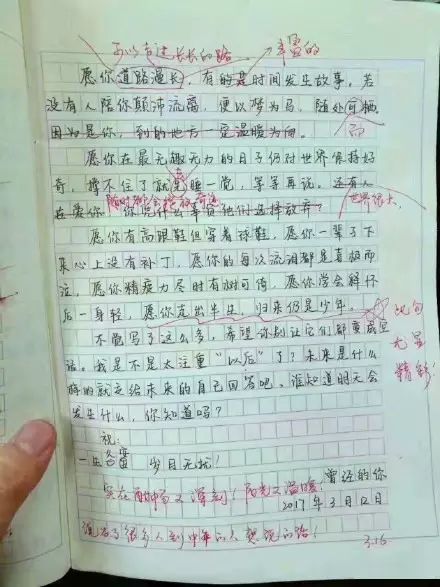 丰富的
长长的路
愿你道路漫长，有的是时间发生故事。若
没有人陪你颠沛流离，便以梦为马，随处可栖。
因为是你，到的地方一定温暖为向。
而
愿你在最无趣无力的日子仍对世界保持好
奇，撑不住了就先睡一觉，等等再说。还有人
在爱你，你凭什么辜负他们选择放弃？
世界很大。
愿你有高跟鞋但穿着球鞋，愿你一辈子下
来心上没有补丁，愿你的每次流泪都是喜极而
泣，愿你精疲力尽时有树可倚，愿你学会释怀
后一身轻，愿你走出半生，归来仍是少年。
此句
尤显
精彩！
不能写了这么多，希望你别让它们都变成空
话。我是不是太注重“以后”了？未来是什么
样的就交给未来的自己回答吧。谁知道明天会
发生什么，你知道吗？
祝：
一生 岁月无扰！
曾经的你
2017年3月12日
实在 又深刻！阳光又温暖
说出了很多人到中年的人
3.16